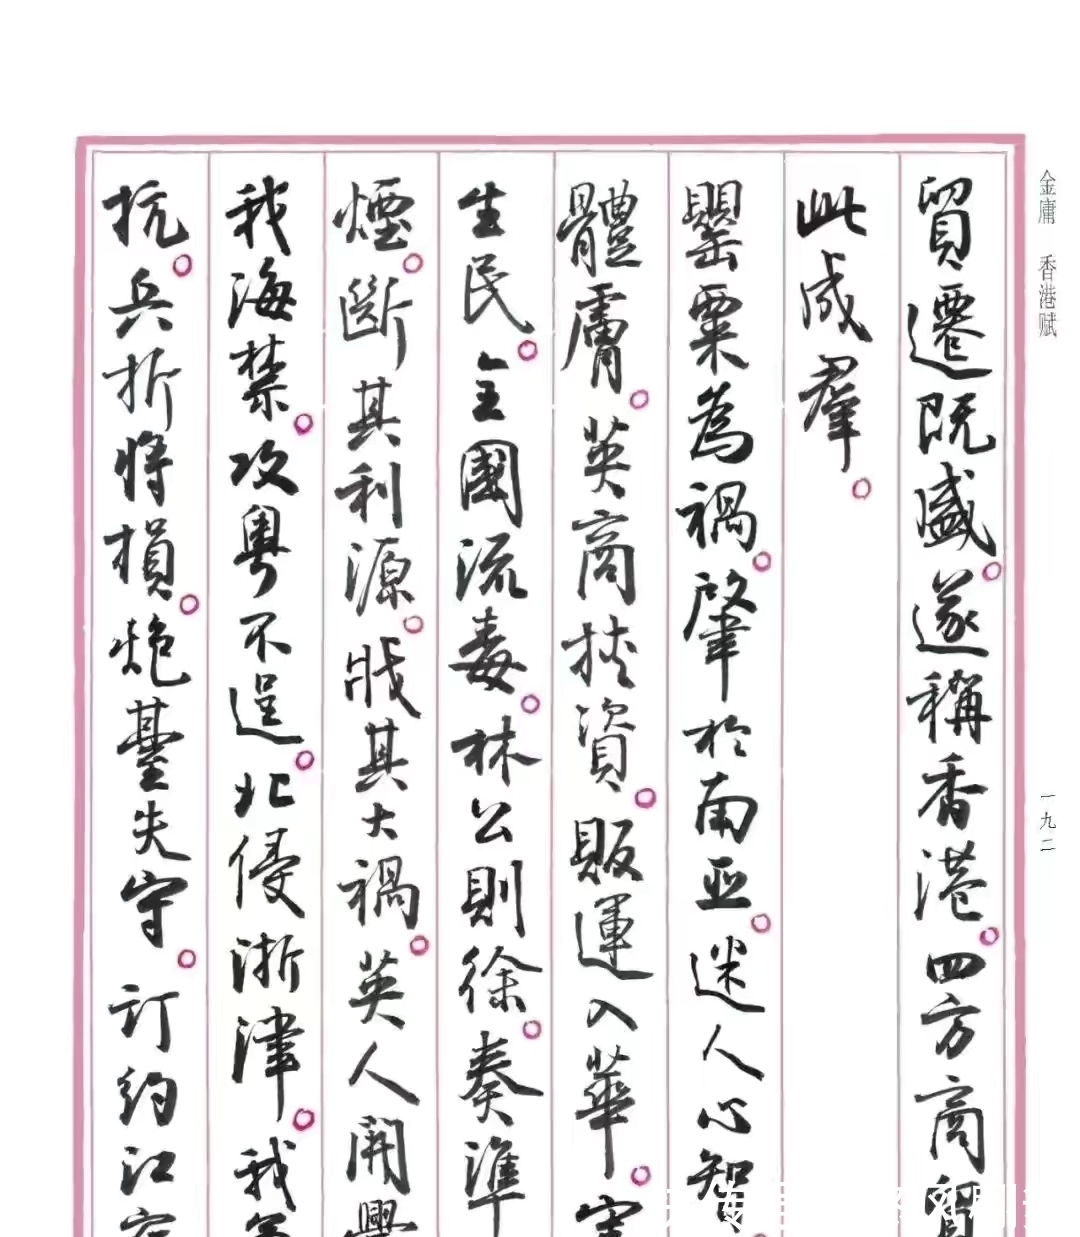 金庸 香港赋
一九二
貿遷既盛。遂稱香港。四方商賈
此成羣。
罌粟為禍。肇於南亞。迷人心智
體膚。英商挾資。販運入華。害
生民。全國流毒。林公則徐。奏準
煙。斷其利源。戕其大禍。英人開釁
我海禁。攻粵不逞。北侵浙津。我
抗。兵折將損。炮臺失守。訂約江